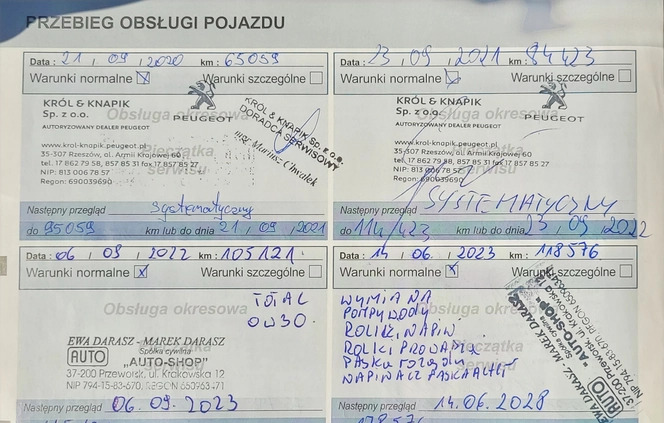 PRZEBIEG OBSŁUGI POJAZDU
Data: 21, 09, 2020 km: 65059
Warunki normalne Warunki szczególne
Obsługa okresowa
KRÓL & KNAPIK
Sp. z o.o.
AUTORYZOWANY DEALER PEUGEOT
PEUGEOT
www.krol-knapik.peugeot.pl
35-307 Rzeszów, al. Armii Krajowej 60
tel. 17 862 79 58, 857 85 31 fax 17 857 85 27
NIP: 813 006 78 57
Regon: 690039690
Pieczątka
serwisu
KRÓL & KNAPIK Sp. z o.o.
DORADCA SERWISOWY
Następny przegląd Systematyczny
do 95059 km lub do dnia 21, 09, 2021
Data: 23, 09, 2021 km: 84423
Warunki normalne Warunki szczególne
Obsługa okresowa
KRÓL & KNAPIK
Sp. z o.o.
AUTORYZOWANY DEALER PEUGEOT
PEUGEOT
www.krol-knapik.peugeot.pl
35-307 Rzeszów, al. Armii Krajowej 60
tel. 17 862 79 58, 857 85 31 fax 17 857 85 27
NIP: 813 006 78 57
Regon: 690039690
Pieczątka
serwisu
Następny przegląd SYSTEMATYCZNY
do 114423 km lub do dnia 23, 09, 2022
Data: 06, 09, 2022 km: 105121
Warunki normalne Warunki szczególne
Obsługa okresowa
TOTAL
0W30.
EWA DARASZ - MAREK DARASZ
Spółka cywilna
AUTO "AUTO-SHOP"
37-200 Przeworsk, ul. Krakowska 12
NIP 794-15-83-670, REGON 650963471
Następny przegląd 06.09.2023
Data: 14, 06, 2023 km: 118576
Warunki normalne Warunki szczególne
WYMIANA
POMPY WODY
ROLKI NAPIN
ROLKI PROWADZ
PASKA rozrządu
NAPINACZ PASKA
EWA DARASZ - MAREK DARASZ
Spółka cywilna
AUTO "AUTO-SHOP"
37-200 Przeworsk, ul. Krakowska 12
NIP 794-15-83-670 REGON 650963471
Następny przegląd 14.06.2028
178576